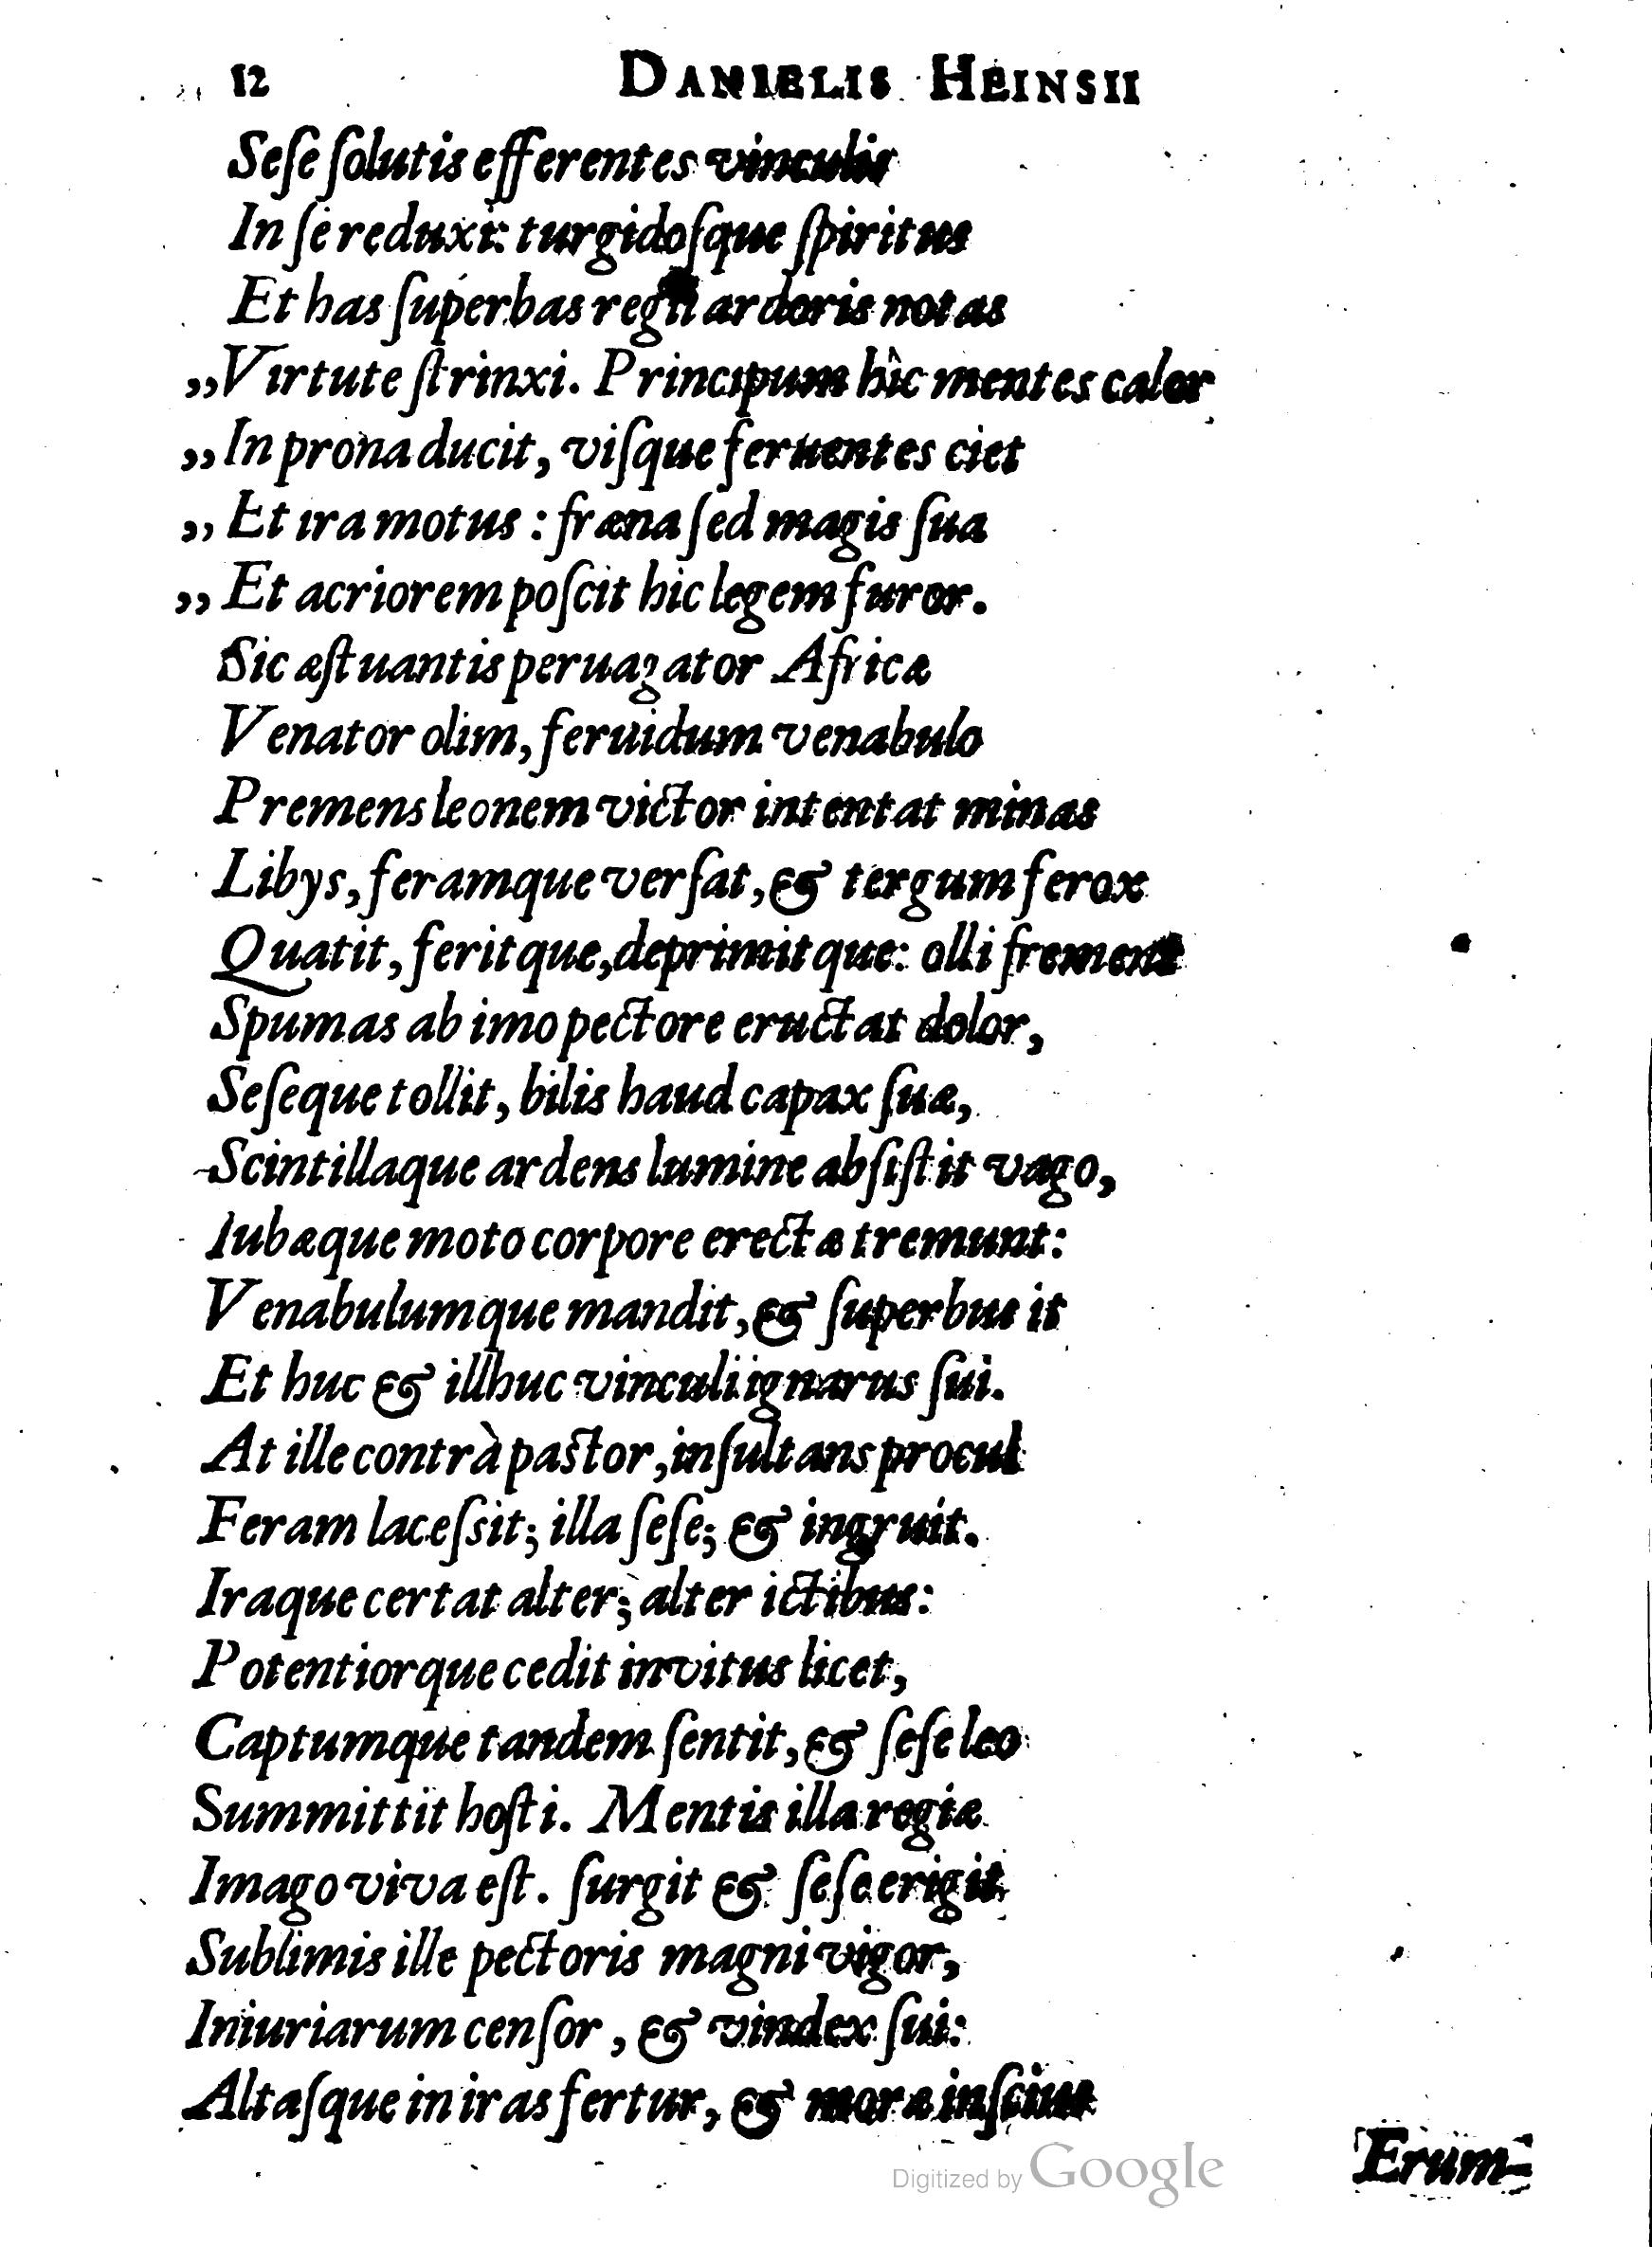 12 DANIELIS HEINSII
Seſe ſolutis efferentes vinculis
In ſe reduxi: turgidoſque ſpiritus
Et has ſuperbas regii ardoris notas
„Virtute ſtrinxi. Principum hîc mentes calor
„In prona ducit, viſque feruentes ciet
„Et ira motus: fræna ſed magis ſua
„Et acriorem poſcit hic legem furor.
Sic æſtuantis peruagator Africæ
Venator olim, feruidum venabulo
Premens leonem victor intentat minas
Libys, feramque verſat, & tergum ferox
Quatit, feritque, deprimitque: olli fremens
Spumas ab imo pectore eructat dolor,
Seſeque tollit, bilis haud capax ſuæ,
Scintillaque ardens lumine abſiſtit vago,
Iubæque moto corpore erectæ tremunt:
Venabulumque mandit, & ſuperbus it
Et huc & illhuc vinculi ignarus ſui.
At ille contrà paſtor, inſultans procul
Feram laceſsit; illa ſeſe; & ingruit.
Iraque certat alter; alter ictibus:
Potentiorque cedit invitus licet,
Captumque tandem ſentit, & ſeſe leo
Summittit hoſti. Mentis illa regiæ
Imago viva eſt. ſurgit & ſeſe erigit
Sublimis ille pectoris magni vigor,
Iniuriarum cenſor, & vindex ſui:
Altaſque in iras fertur, & moræ inſcius
Erum-
Digitized by Google